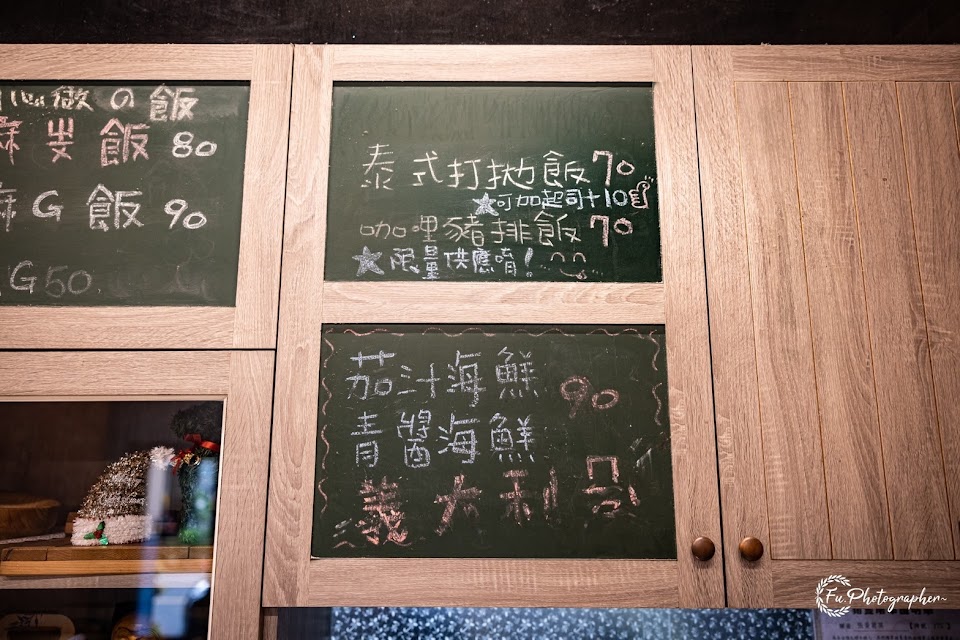 心做の飯
飯 80
麻G飯 90
G50
泰式打拋飯70
★可加起司+10
咖哩豬排飯70
★限量供應唷!
茄汁海鮮
90
青醬海鮮
義大利
Fu.Photographer~